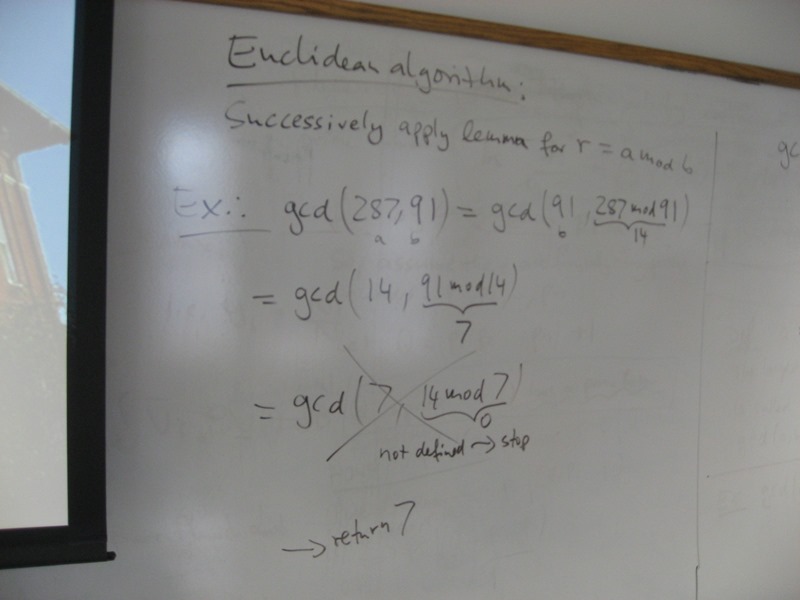 Euclidean algorithm:
Successively apply lemma for r = a mod b
Ex.: gcd(287,91) = gcd(91, 287 mod 91)
a b b 14
= gcd(14, 91 mod 14)
7
= gcd(7, 14 mod 7)
0
not defined → stop
→ return 7
gc